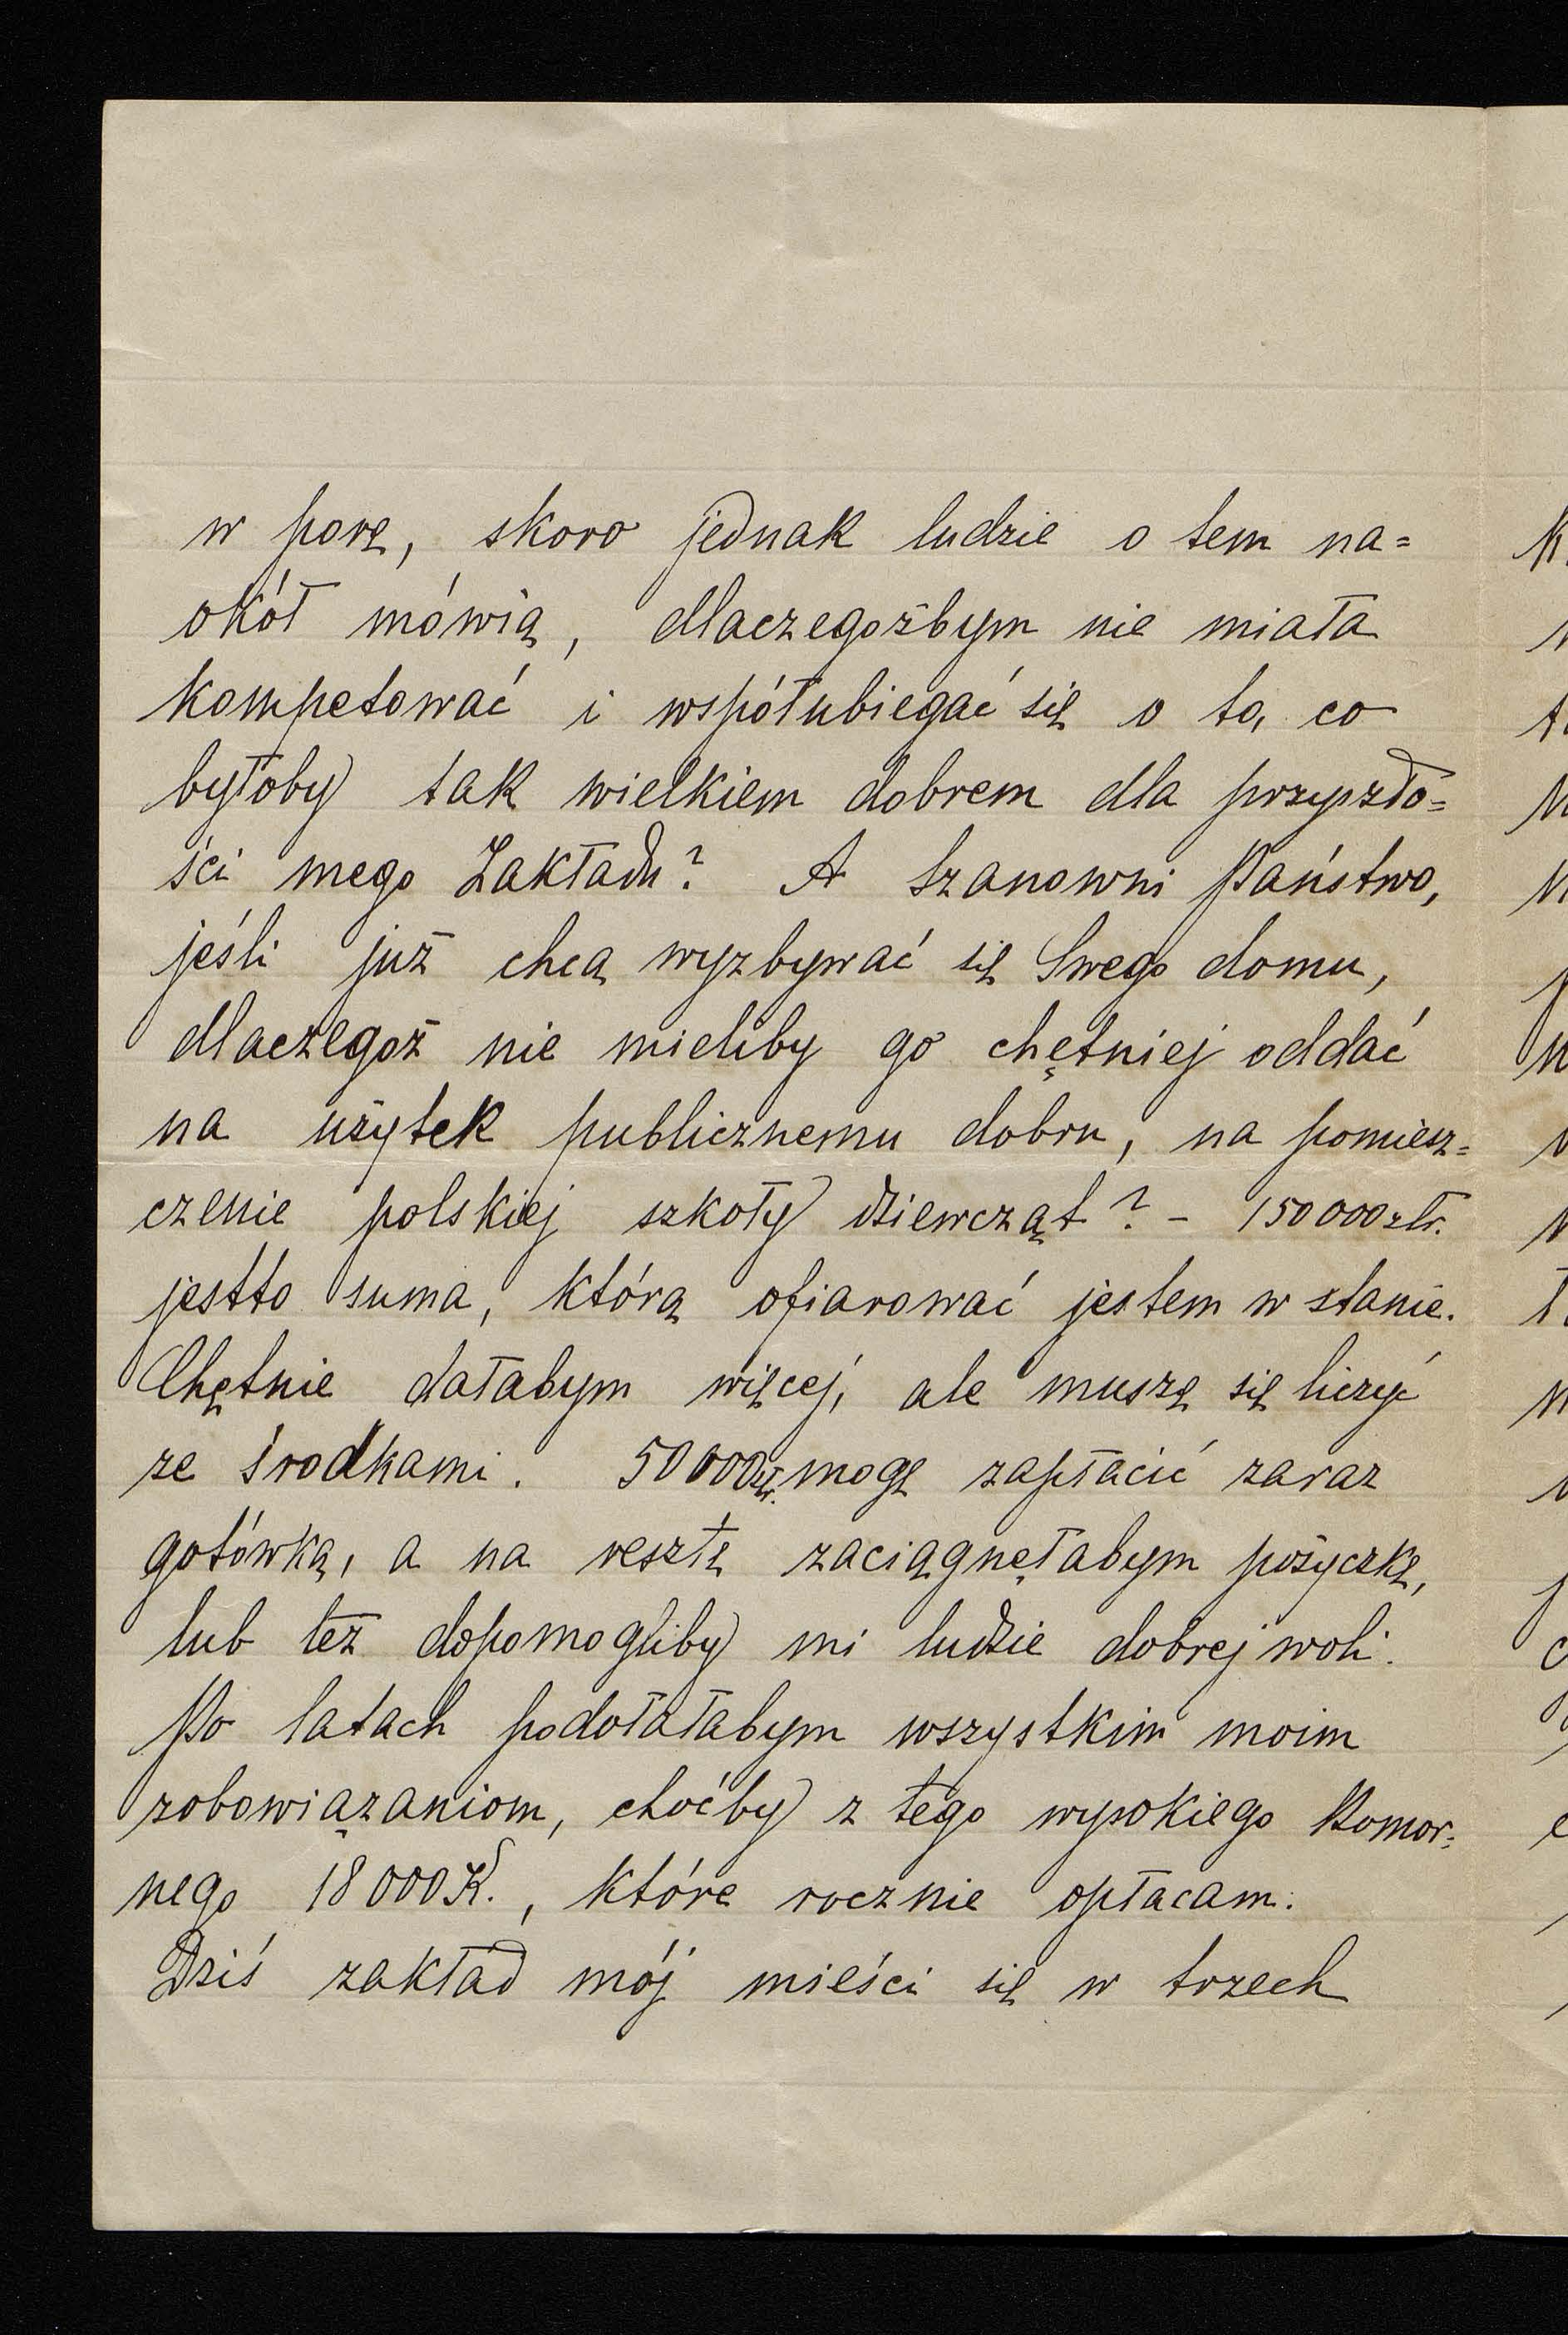 w porę, skoro jednak ludzie o tem na=
okół mówią, dlaczegożbym nie miała
kompetować i współubiegać się o to, co
byłoby tak wielkiem dobrem dla przyszło=
ści mego Zakładu? A Szanowni Państwo,
jeśli już chcą wyzbywać się Swego domu,
dlaczegoż nie mieliby go chętniej oddać
na użytek publicznemu dobru, na pomiesz=
czenie polskiej szkoły dziewcząt? – 150000 złr.
jestto suma, którą ofiarować jestem w stanie.
Chętnie dałabym więcej, ale muszę się liczyć
ze środkami. 50000 złr. mogę zapłacić zaraz
gotówką, a na resztę zaciągnęłabym pożyczkę,
lub też dopomogliby mi ludzie dobrej woli.
Po latach podołałabym wszystkim moim
zobowiązaniom, choćby z tego wysokiego Komor=
nego 18000 K., które rocznie opłacam.
Dziś zakład mój mieści się w trzech